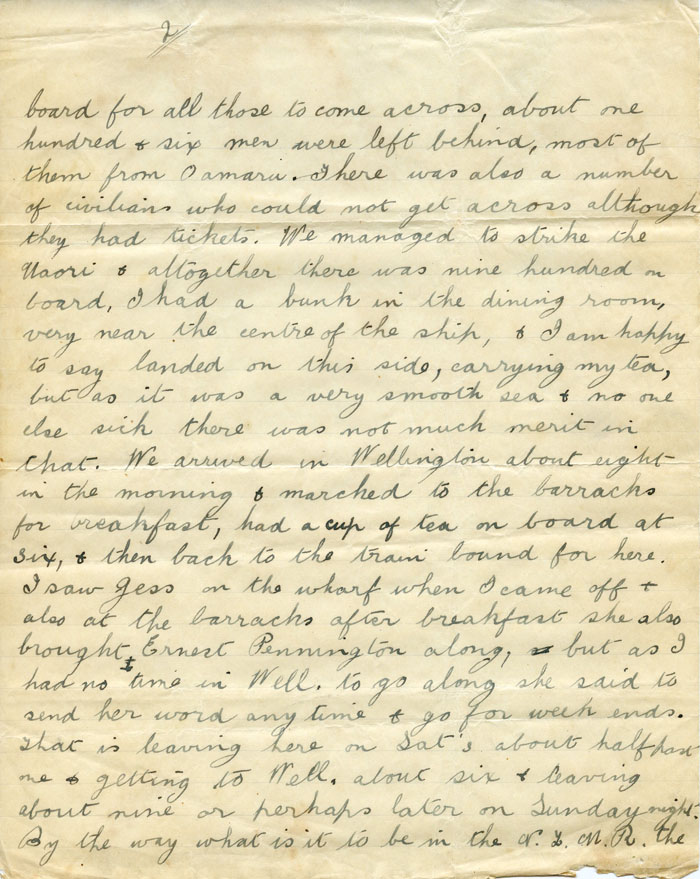 2
board for all those to come across, about one
hundred & six men were left behind, most of
them from Oamaru. There was also a number
of civilians who could not get across although
they had tickets. We managed to strike the
Maori & altogether there was nine hundred on
board, I had a bunk in the dining room,
very near the centre of the ship, & I am happy
to say landed on this side, carrying my tea,
but as it was a very smooth sea & no one
else sick there was not much merit in
that. We arrived in Wellington about eight
in the morning & marched to the barracks
for breakfast, had a cup of tea on board at
six, & then back to the train bound for here.
I saw Jess on the wharf when I came off &
also at the barracks after breakfast she also
brought Ernest Pennington along, but as I
had no time in Well. to go along she said to
send her word any time & go for week ends.
That is leaving here on Sat's about half past
one & getting to Well. about six & leaving
about nine or perhaps later on Sunday night.
By the way what is it to be in the N.Z.M.R. the